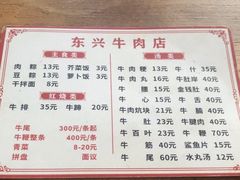 东兴牛肉店
主食类
肉粽 13元 芥菜饭 3元
豆粽 13元 萝卜饭 3元
干拌面 8元
红烧类
牛排 35元 牛蹄 20元
牛尾 300元/条起
牛鞭整条 400元/条起
青菜 8-20元
拼盘 面议
汤类
牛肉粳 13元 牛什 35元
牛肉丸 16元 牛肚岸 40元
牛腰 35元 金钱肚 40元
牛心 35元 牛舌 40元
牛肉炕块 21元 牛脑 40元
牛肚 33元 牛腱肉 40元
牛百叶 23元 牛鞭 70元
牛筋 40元 鲨鱼片 35元
牛尾 60元 水丸汤 12元